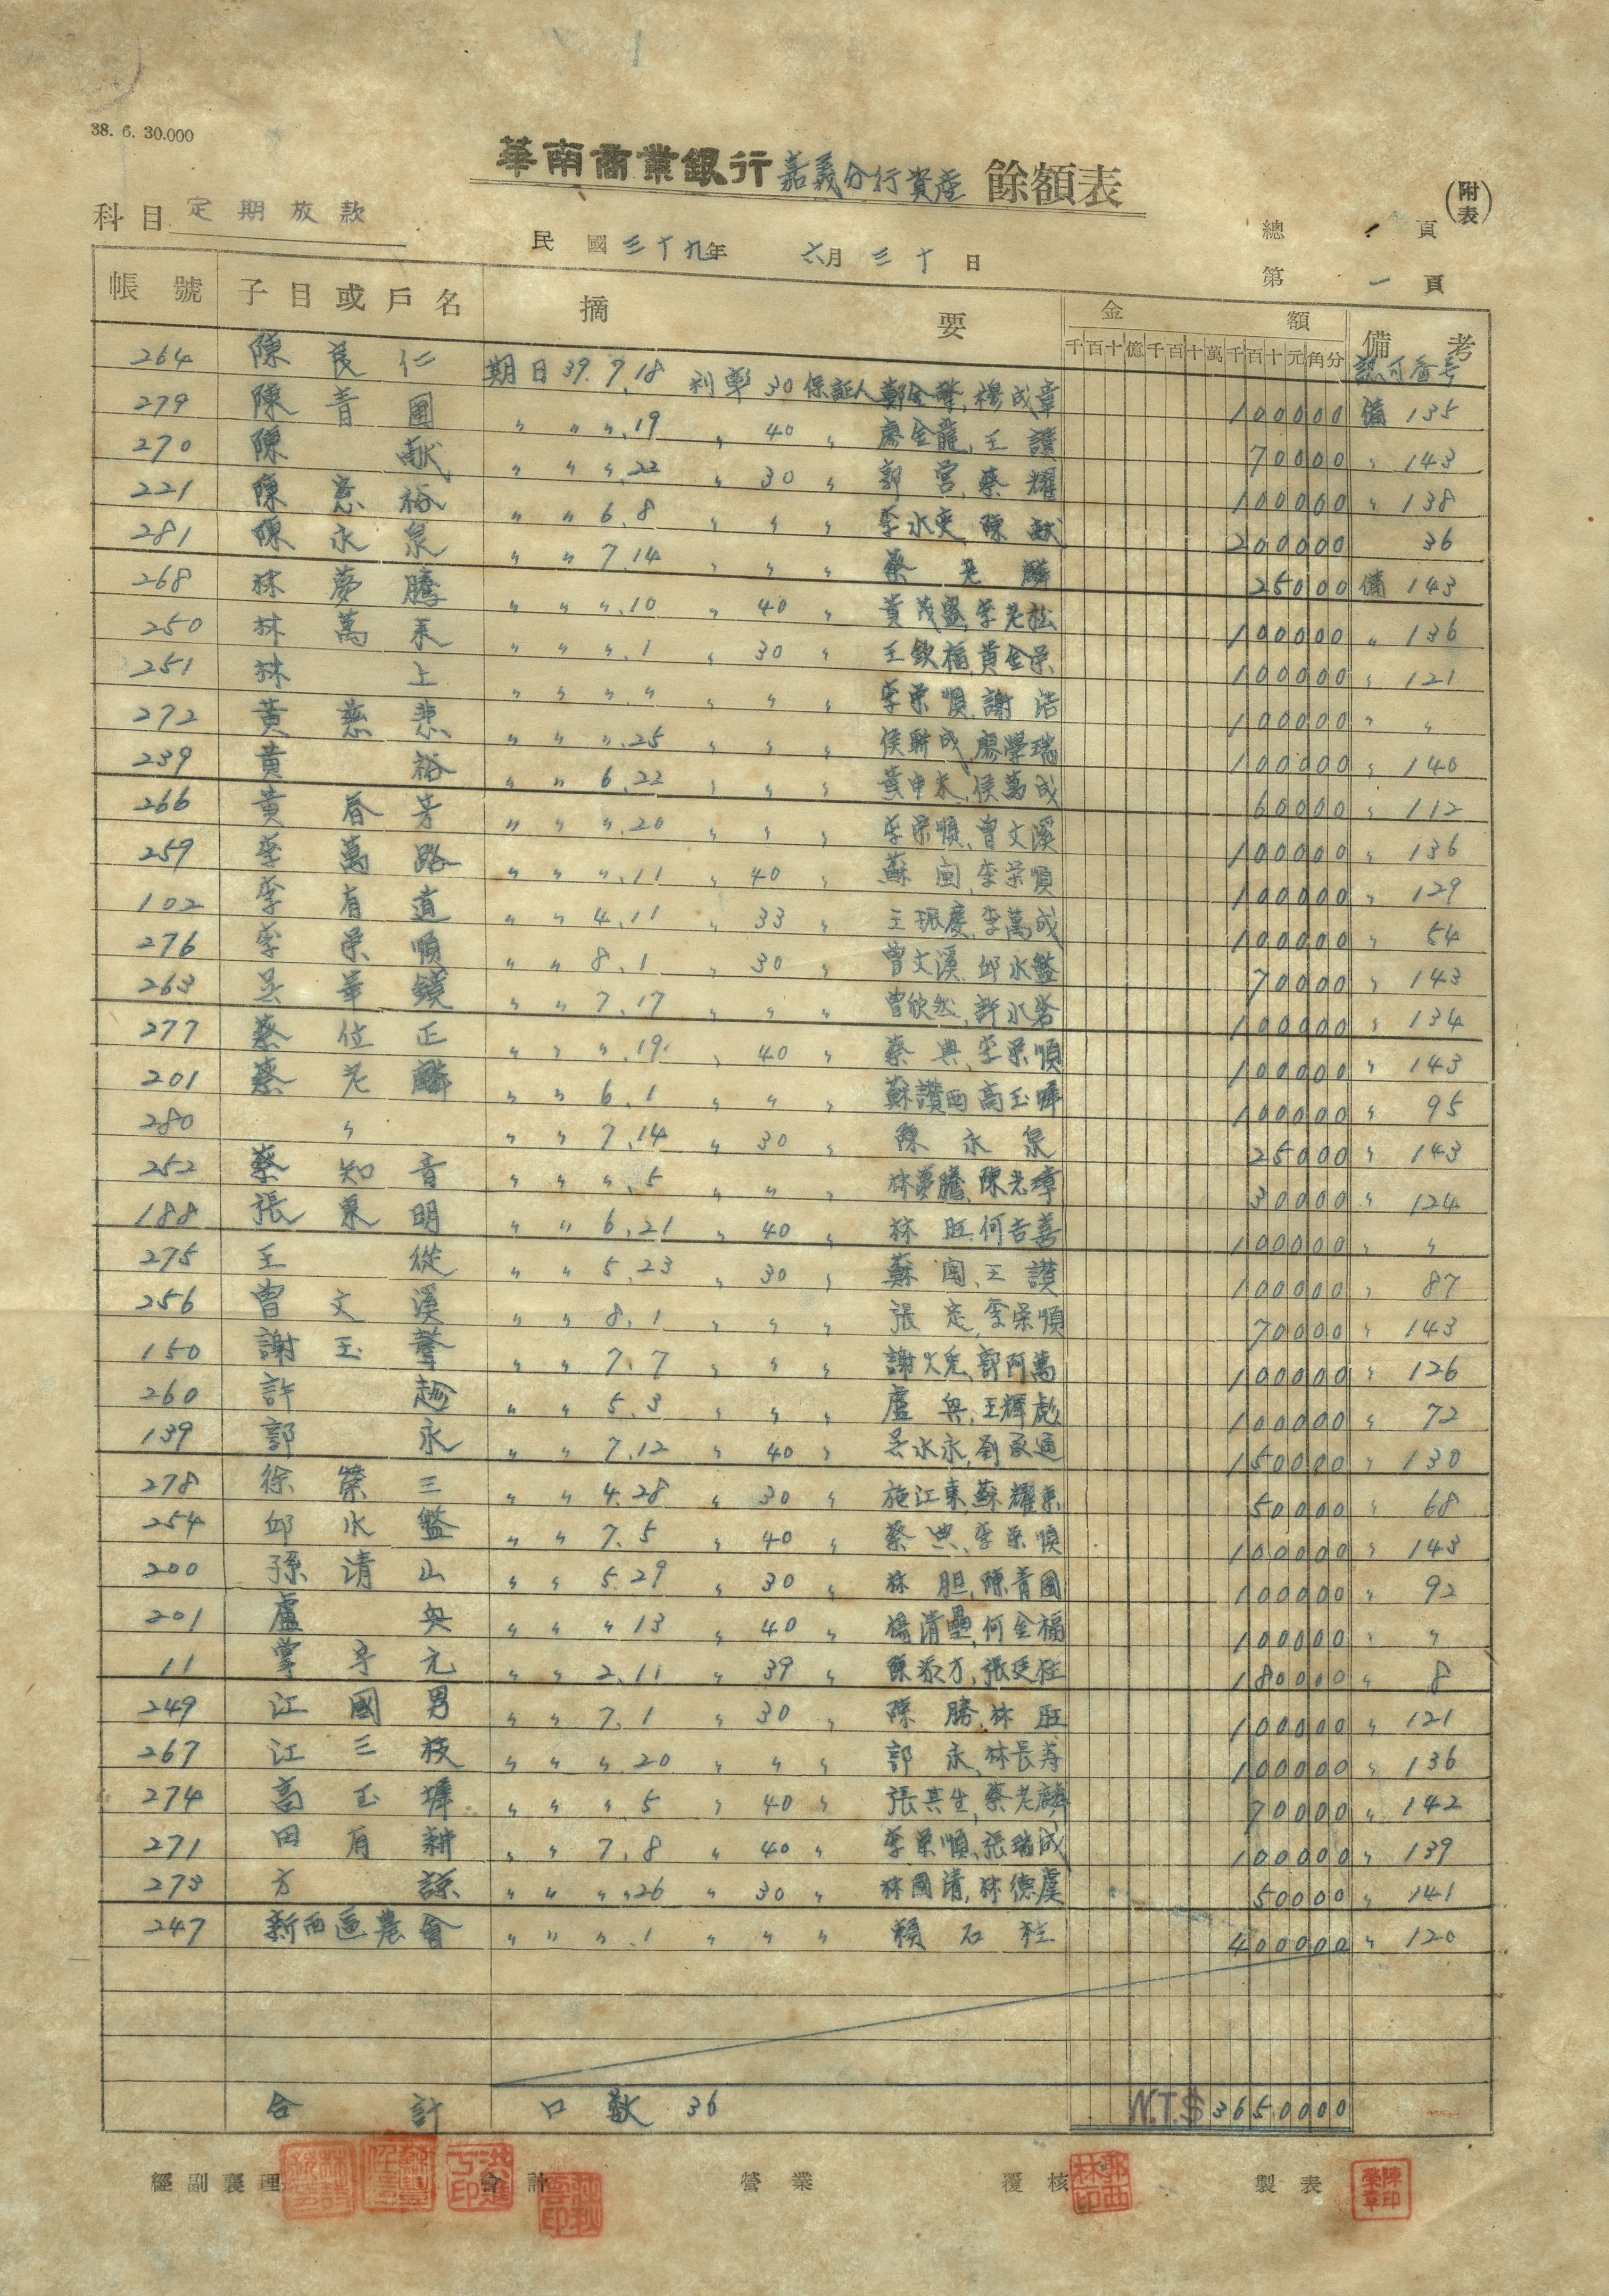 38. 6. 30.000
華南商業銀行嘉義分行資產 餘額表
(附表)
科目 定期放款
民國三十九年 六月三十日
總 1 頁
第 一 頁
帳號 子目或戶名 摘要 金額 備考
千百十億千百十萬千百十元角分 認可番号
264 陳良仁 期日39.7.18 利率30 保証人 鄭金聲,楊成章 100000 備135
279 陳青圖 〃 〃 〃.19 〃 40 〃 廖金龍,王讚 70000 〃 143
270 陳献 〃 〃 〃.22 〃 30 〃 郭宮,蔡耀 100000 〃 138
221 陳憲裕 〃 〃 6.8 〃 〃 〃 李水夾,陳献 200000 36
281 陳永泉 〃 〃 7.14 〃 〃 〃 蔡老麟 25000 備143
268 林夢騰 〃 〃 〃.10 〃 40 〃 黃茂盛,李老松 100000 〃 136
250 林萬来 〃 〃 〃.1 〃 30 〃 王欽福,黃金栄 100000 〃 121
251 林上 〃 〃 〃.〃 〃 〃 〃 李栄順,謝浩 100000 〃 〃
272 黃慈悲 〃 〃 〃.25 〃 〃 〃 侯聯成,廖學瑞 100000 〃 140
239 黃裕 〃 〃 6.22 〃 〃 〃 黃申未,侯萬成 60000 〃 112
266 黃春芳 〃 〃 〃.20 〃 〃 〃 李栄順,曾文溪 100000 〃 136
259 李萬路 〃 〃 〃.11 〃 40 〃 蘇闽,李栄順 100000 〃 129
102 李有道 〃 〃 4.11 〃 33 〃 王振慶,李萬成 100000 〃 54
276 李栄順 〃 〃 8.1 〃 30 〃 曾文溪,邱水盤 70000 〃 143
263 吳華鏡 〃 〃 7.17 〃 〃 〃 曾欣然,許水 100000 〃 134
277 蔡位正 〃 〃 〃.19 〃 40 〃 蔡典,李栄順 100000 〃 143
201 蔡老麟 〃 〃 6.1 〃 〃 〃 蘇讚西,高玉墀 100000 〃 95
280 〃 〃 〃 7.14 〃 30 〃 陳永泉 25000 〃 143
252 蔡知音 〃 〃 〃.5 〃 〃 〃 林夢騰,陳老璋 30000 〃 124
188 張東明 〃 〃 6.21 〃 40 〃 林旺,何吉善 100000 〃 〃
275 王從 〃 〃 5.23 〃 30 〃 蘇闽,王讚 100000 〃 87
256 曾文溪 〃 〃 8.1 〃 〃 〃 張定,李栄順 70000 〃 143
150 謝玉聲 〃 〃 7.7 〃 〃 〃 謝火兎,郭阿萬 100000 〃 126
260 許趁 〃 〃 5.3 〃 〃 〃 盧與,王輝彪 100000 〃 72
139 郭永 〃 〃 7.12 〃 40 〃 吳水永,劉承通 150000 〃 130
278 徐榮三 〃 〃 4.28 〃 30 〃 施江東,蘇耀東 50000 〃 68
254 邱水盤 〃 〃 7.5 〃 40 〃 蔡典,李栄順 100000 〃 143
200 孫清山 〃 〃 5.29 〃 30 〃 林胆,陳青圖 100000 〃 92
201 盧與 〃 〃 〃 13 〃 40 〃 楊清壘,何金福 100000 〃 〃
11 掌字元 〃 〃 2.11 〃 39 〃 陳方,張廷柱 180000 〃 8
249 江國男 〃 〃 7.1 〃 30 〃 陳勝,林旺 100000 〃 121
267 江三枝 〃 〃 〃.20 〃 〃 〃 郭永,林長寿 100000 〃 136
274 高玉墀 〃 〃 〃 5 〃 40 〃 張其生,蔡老麟 70000 〃 142
271 田有耕 〃 〃 7.8 〃 40 〃 李栄順,張瑞成 100000 〃 139
273 方諒 〃 〃 〃.26 〃 30 〃 林國清,林德虞 50000 〃 141
247 新西區農會 〃 〃 〃.1 〃 〃 〃 賴石柱 400000 〃 120
合計 口數 36 N.T.$ 3650000
經副襄理 會計 營業 覆核 製表